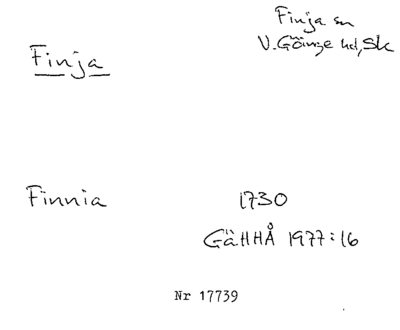 Finja
Finja sn
V. Göinge hd, Sk
Finnia
1730
GäHHÅ 1977:16
Nr 17739